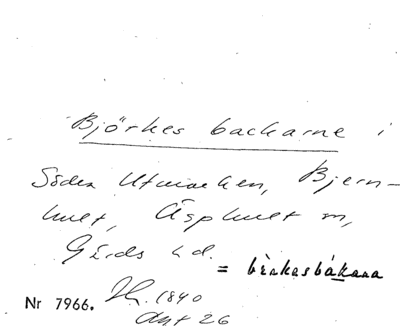 Björkes backarne i
Söder Utmarken, Bjern-
hult, Äsphult sn,
Gärds hd.
= bèrkasbákana
Nr 7966. Ih. 1840
Akt 26